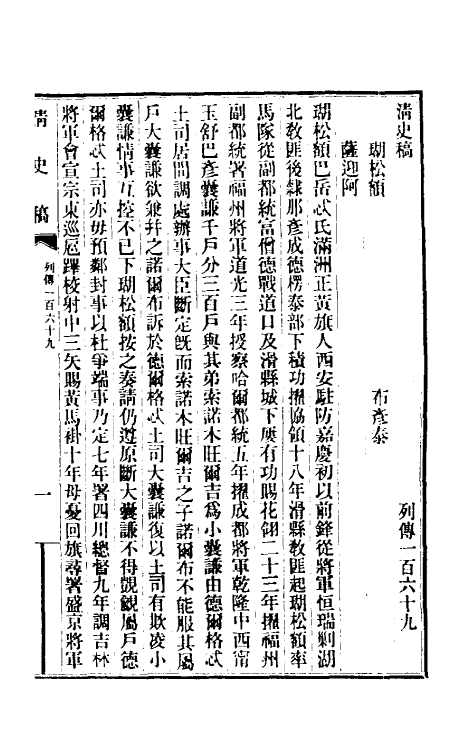 清史稿
列傳一百六十九
瑚松額
布彥泰
薩迎阿
瑚松額巴岳忒氏滿洲正黃旗人西安駐防嘉慶初以前鋒從將軍恒瑞剿湖
北敎匪後隸那彥成德楞泰部下積功擢協領十八年滑縣敎匪起瑚松額率
馬隊從副都統富僧德戰道口及滑縣城下屢有功賜花翎二十三年擢福州
副都統署福州將軍道光三年授察哈爾都統五年擢成都將軍乾隆中西甯
玉舒巴彥囊謙千戶分三百戶與其弟索諾木旺爾吉爲小囊謙由德爾格忒
土司居間調處辦事大臣斷定旣而索諾木旺爾吉之子諾爾布不能服其屬
戶大囊謙欲兼幷之諾爾布訴於德爾格忒土司大囊謙復以土司有欺凌小
囊謙情事互控不已下瑚松額按之奏請仍遵原斷大囊謙不得覬覦屬戶德
爾格忒土司亦毋預鄰封事以杜爭端事乃定七年署四川總督九年調吉林
將軍會宣宗東巡扈蹕校射中三矢賜黃馬褂十年母憂回旗尋署盛京將軍
清史稿
列傳一百六十九
一